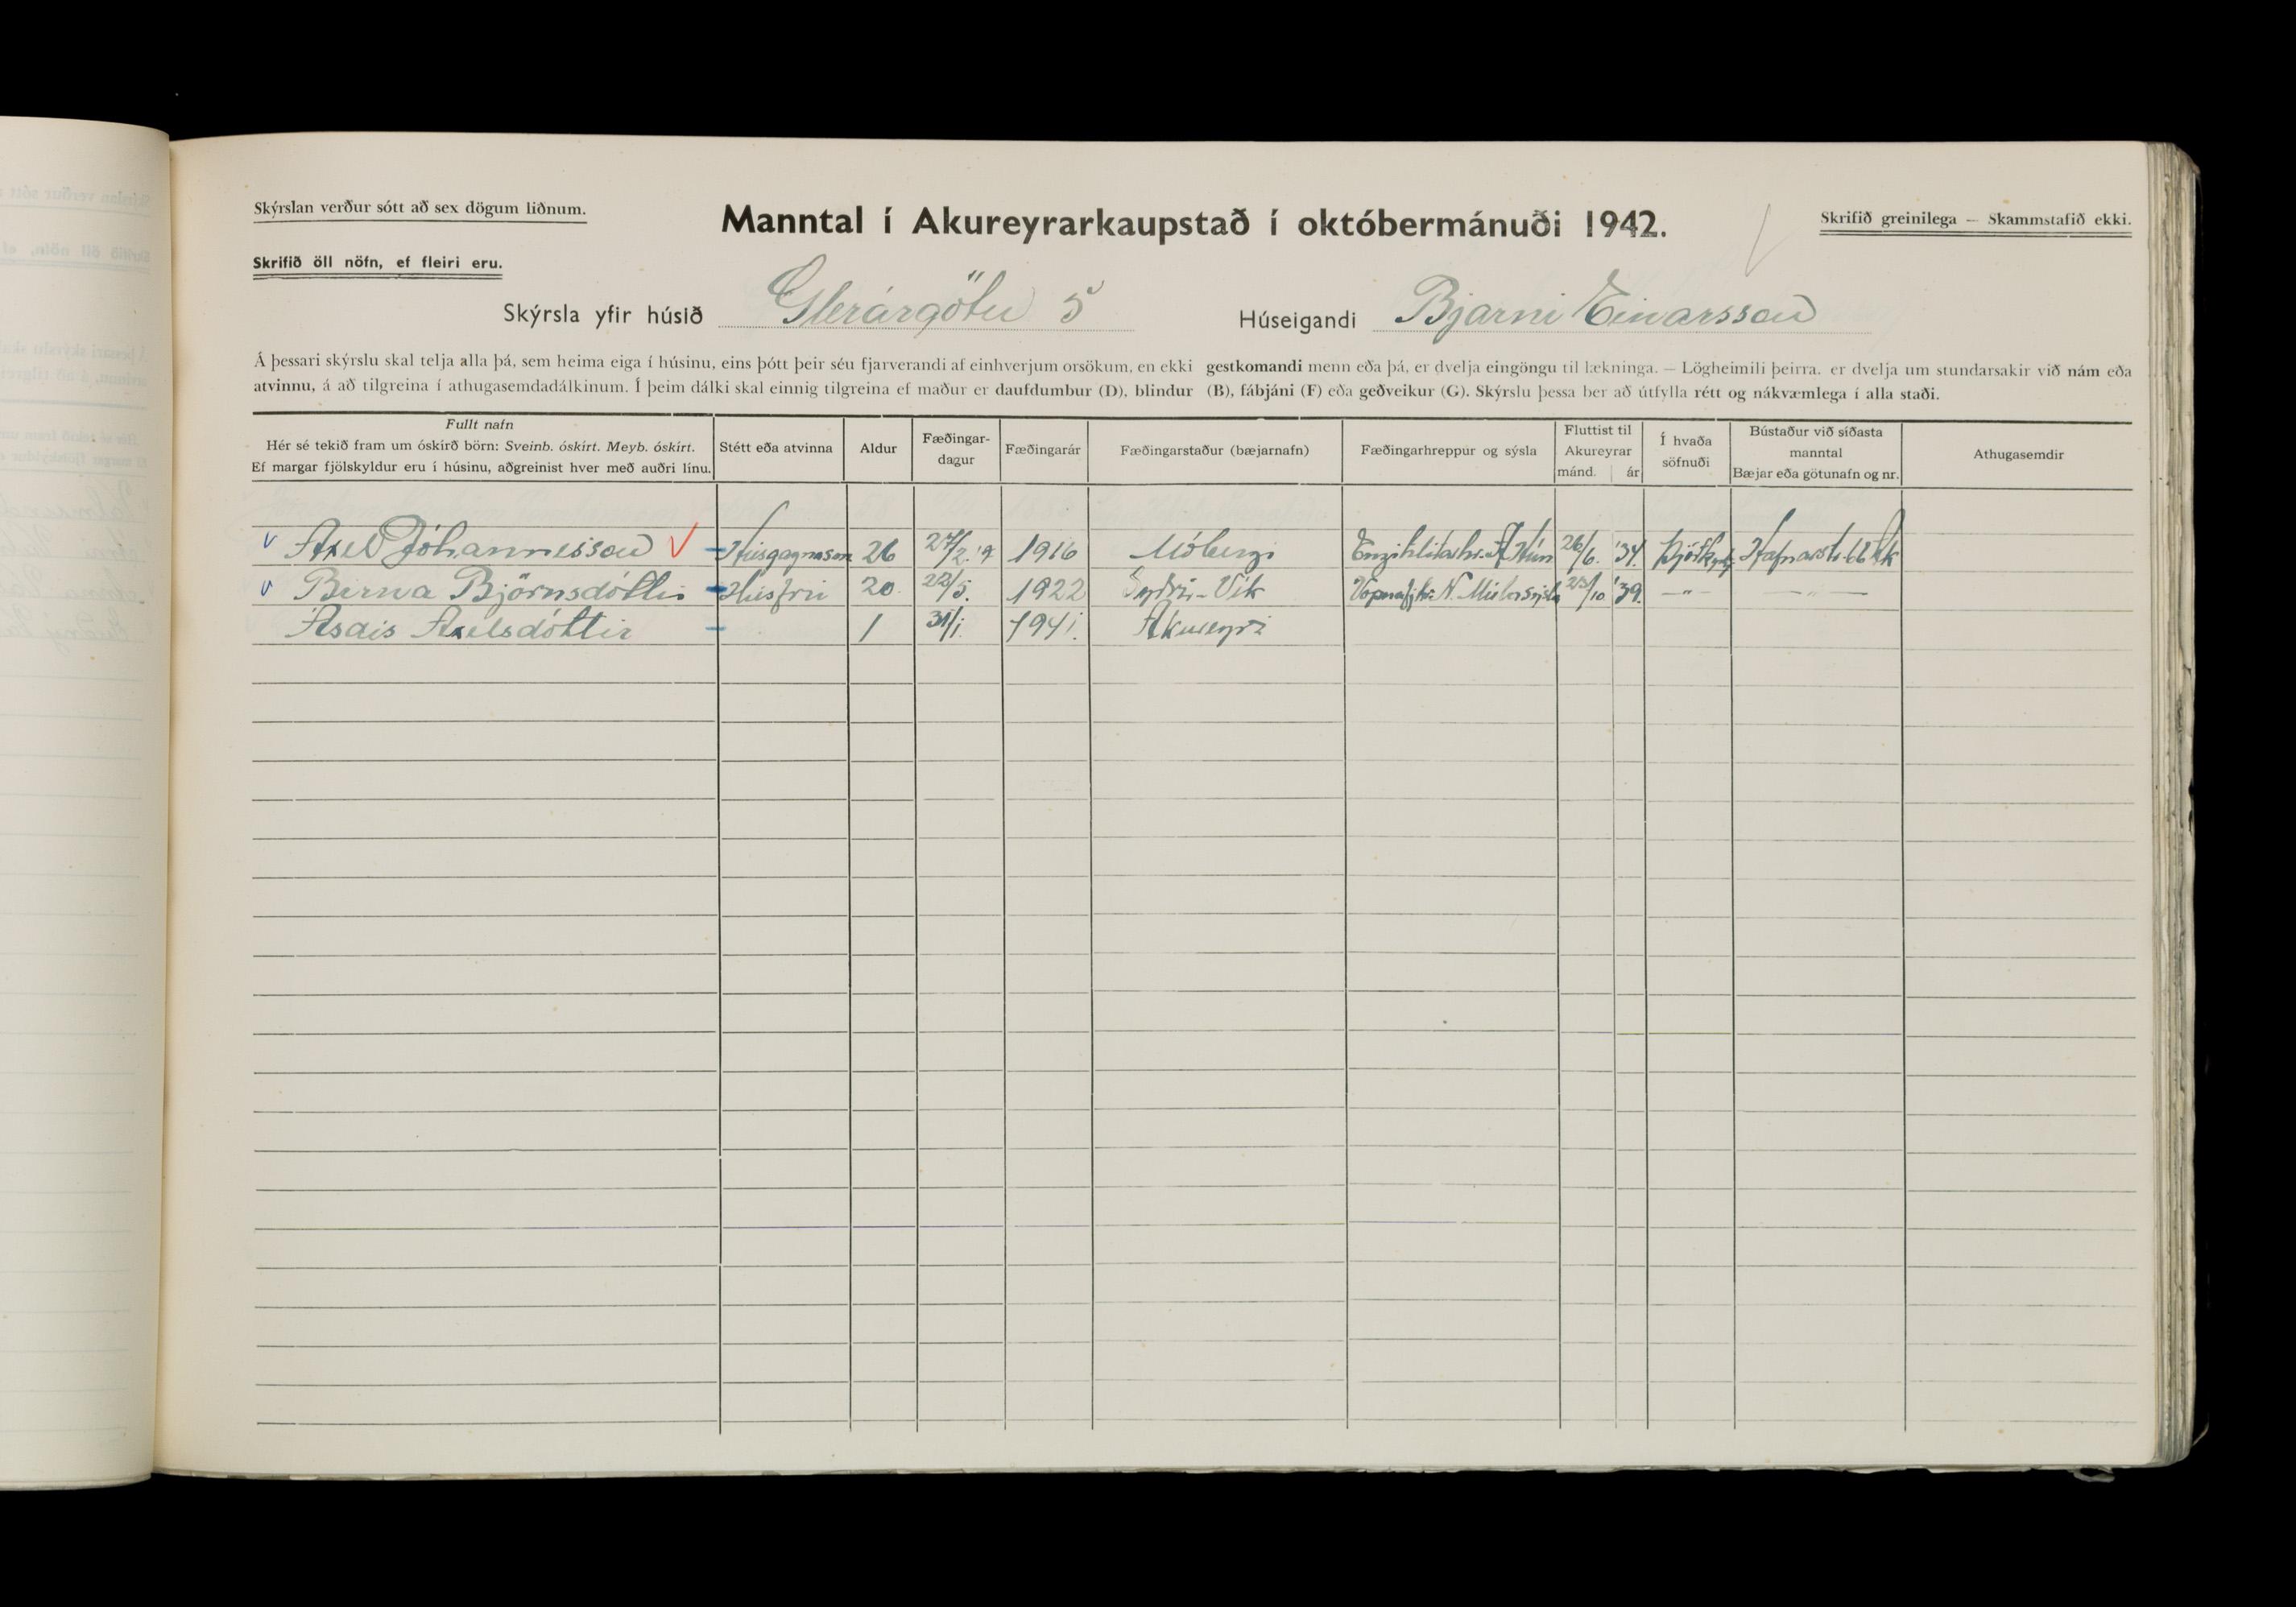 Skýrslan verður sótt að sex dögum liðnum.
Manntal í Akureyrarkaupstað í októbermánuði 1942.
Skrifið greinilega — Skammstafið ekki.
Skrifið öll nöfn, ef fleiri eru.
Skýrsla yfir húsið Glerárgötu 5 Húseigandi Bjarni Einarsson
Á þessari skýrslu skal telja alla þá, sem heima eiga í húsinu, eins þótt þeir séu fjarverandi af einhverjum orsökum, en ekki gestkomandi menn eða þá, er dvelja eingöngu til lækninga. — Lögheimili þeirra, er dvelja um stundarsakir við nám eða
atvinnu, á að tilgreina í athugasemdadálkinum. Í þeim dálki skal einnig tilgreina ef maður er daufdumbur (D), blindur (B), fábjáni (F) eða geðveikur (G). Skýrslu þessa ber að útfylla rétt og nákvæmlega í alla staði.
Fullt nafn
Hér sé tekið fram um óskírð börn: Sveinb. óskírt. Meyb. óskírt.
Ef margar fjölskyldur eru í húsinu, aðgreinist hver með auðri línu.
Stétt eða atvinna
Aldur
Fæðingar-
dagur
Fæðingarár
Fæðingarstaður (bæjarnafn)
Fæðingarhreppur og sýsla
Fluttist til
Akureyrar
mánd. ár
Í hvaða
söfnuði
Bústaður við síðasta
manntal
Bæjar eða götunafn og nr.
Athugasemdir
v Axel Jóhannesson V 26 27/2. 1916 Móbergi 26/6. '34. Hafnarstr.
v Birna Björnsdóttir Húsfrú 20. 22/5. 1922 Syðri-Vík N. Múlasýsla 23/10 '39. —"— —"—
Ásdís Axelsdóttir 1 31/1. 1941. Akureyri